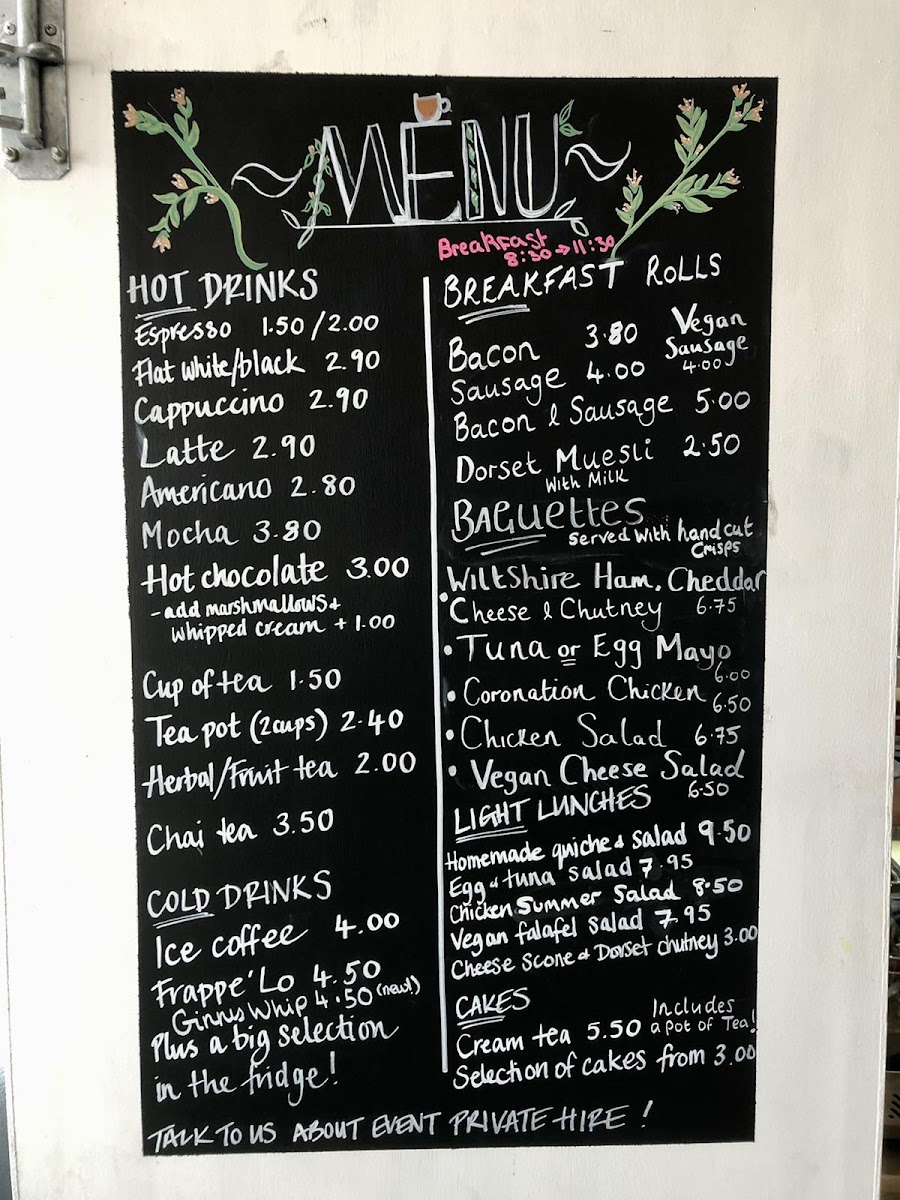 MENU
Breakfast
8:30 → 11:30
HOT DRINKS
Espresso 1.50 / 2.00
Flat white/black 2.90
Cappuccino 2.90
Latte 2.90
Americano 2.80
Mocha 3.80
Hot chocolate 3.00
- add marshmallows +
whipped cream + 1.00
Cup of tea 1.50
Tea pot (2cups) 2.40
Herbal/Fruit tea 2.00
Chai tea 3.50
COLD DRINKS
Ice coffee 4.00
Frappe'Lo 4.50
Ginnis Whip 4.50 (new!)
Plus a big selection
in the fridge!
BREAKFAST ROLLS
Bacon 3.80
Vegan
Sausage
4.00
Sausage 4.00
Bacon & Sausage 5.00
Dorset Muesli 2.50
With Milk
BAGuettes
Served With hand cut
Crisps
• Wiltshire Ham, Cheddar
Cheese & Chutney 6.75
• Tuna or Egg Mayo
6.00
• Coronation Chicken 6.50
• Chicken Salad 6.75
• Vegan Cheese Salad
6.50
LIGHT LUNCHES
Homemade quiche + salad 9.50
Egg + tuna salad 7.95
Chicken Summer Salad 8.50
Vegan falafel salad 7.95
Cheese Scone + Dorset chutney 3.00
CAKES
Cream tea 5.50 Includes
a pot of Tea!
Selection of cakes from 3.00
TALK TO US ABOUT EVENT PRIVATE-HIRE !